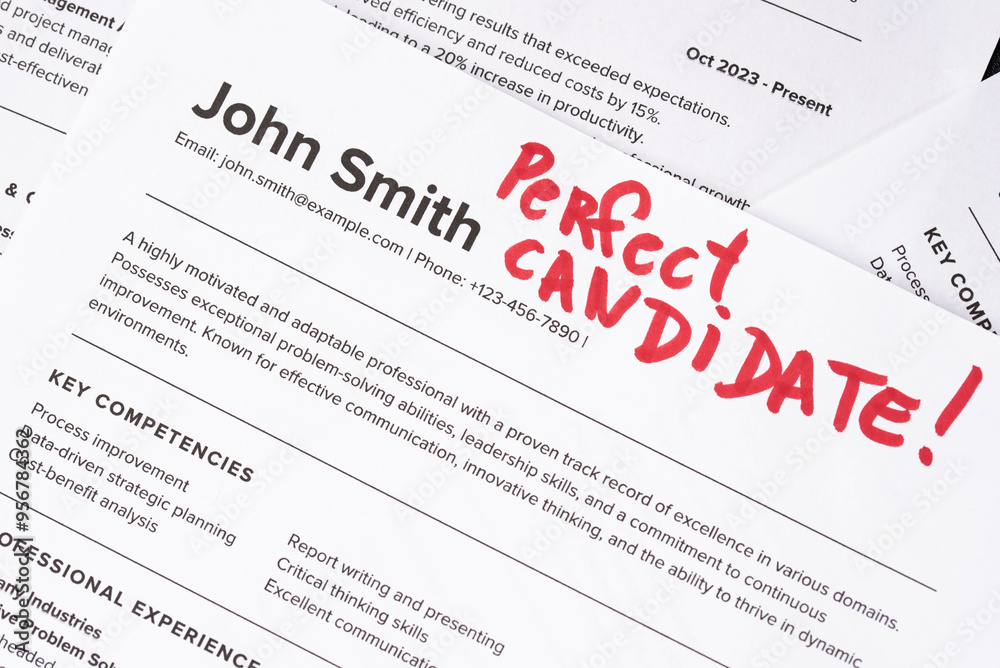 vering results that exceeded expectations.
ved efficiency and reduced costs by 15%.
leading to a 20% increase in productivity.
growth
Oct 2023 - Present
agement /
d project mana
s and deliverab
st-effectiven
& C
John Smith
Email: john.smith@example.com | Phone: +123-456-7890 |
PERfect
CANDiDATE!
A highly motivated and adaptable professional with a proven track record of excellence in various domains.
Possesses exceptional problem-solving abilities, leadership skills, and a commitment to continuous
improvement. Known for effective communication, innovative thinking, and the ability to thrive in dynamic
environments.
KEY COMPETENCIES
Process improvement
Data-driven strategic planning
Cost-benefit analysis
Report writing and presenting
Critical thinking skills
Excellent communicatio
OFESSIONAL EXPERIENCE
any Industries
ive Problem Sol
headed
KEY COMP
Process
Dat
Adobe Stock | #956784362